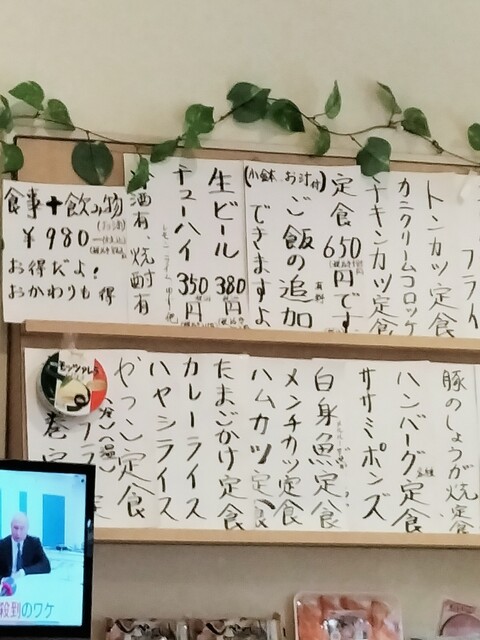 フライ
トンカツ定食
カニクリームコロッケ
チキンカツ定食
定食650円です
(小鉢 お汁付)
ご飯の追加
できますよ
有料
生ビール 380円
チューハイ 350円
酒有 焼酎有
食事+飲み物
¥980
お得だよ!
おかわりも得
豚のしょうが焼定食
ハンバーグ定食
ササミポンズ
白身魚定食
メンチカツ定食
ハムカツ定食
たまごかけ定食
カレーライス
ハヤシライス
やっこ定食
(冷)(温)
モッツァレラ
殺到のワケ